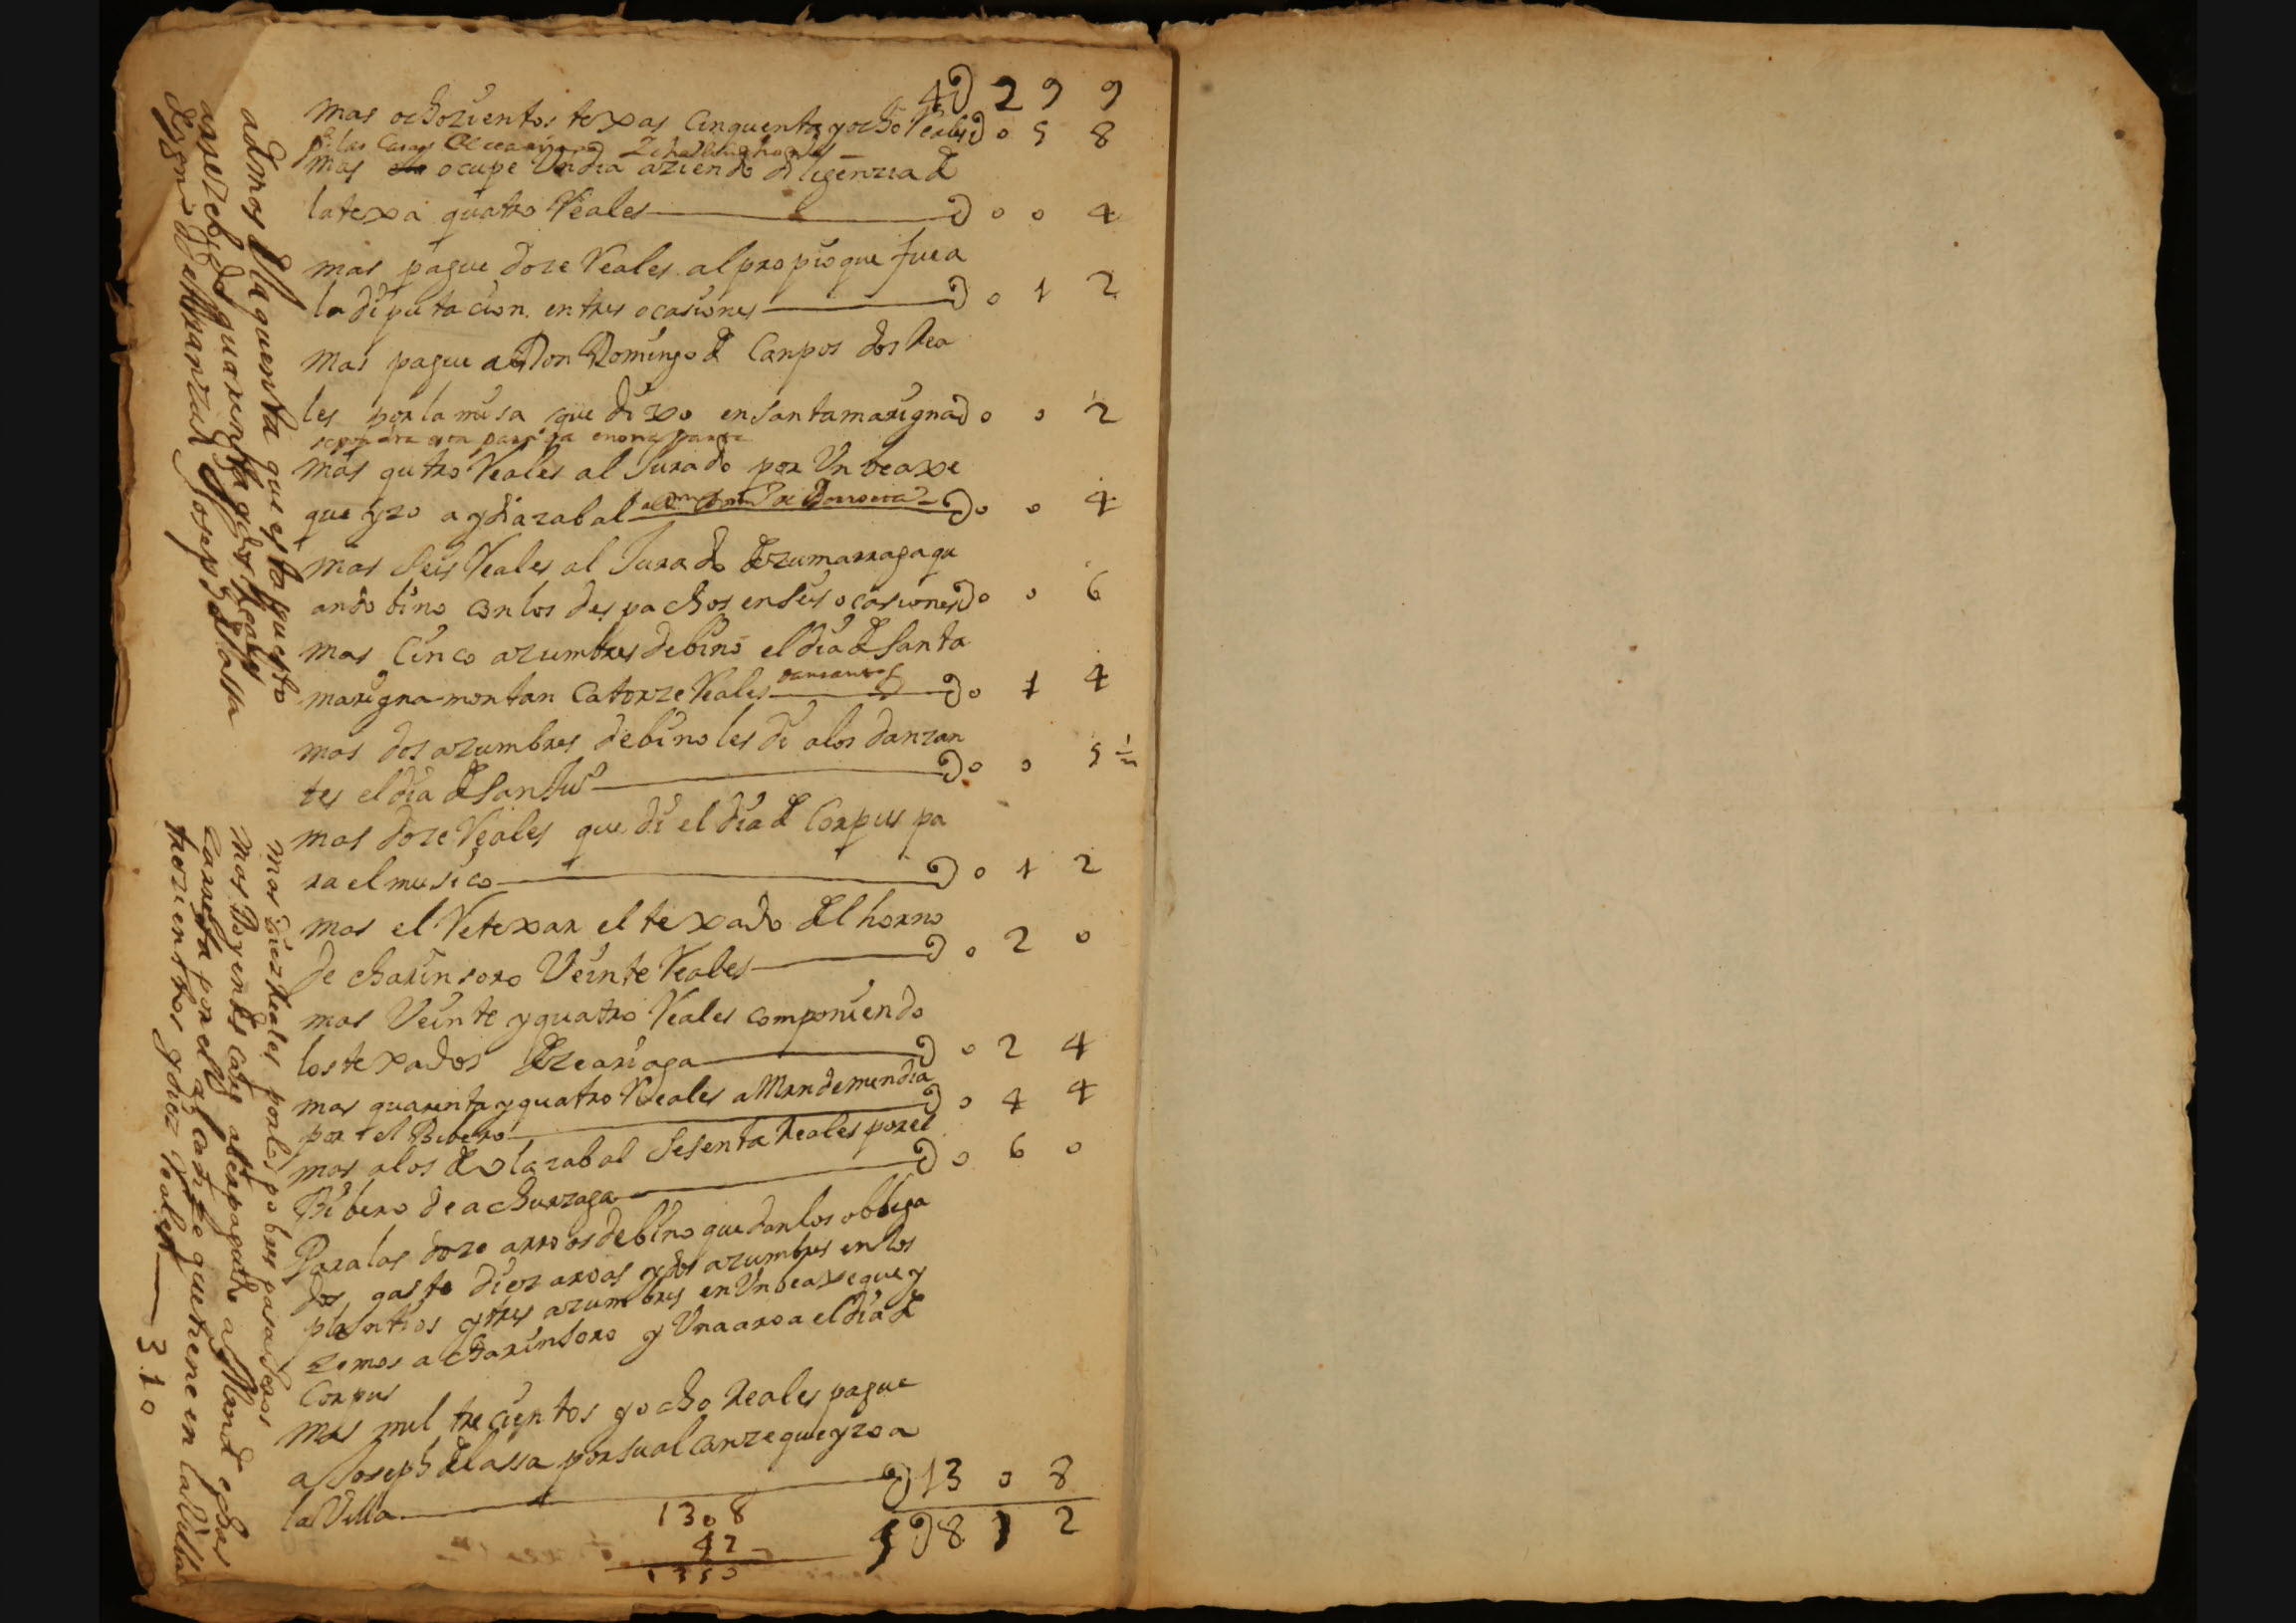 4U299
mas ochozientos texas cinquenta y ocho Reales U058
de las Casas
mas ocupe Un dia aziendo diligenzia de
la texa quatro Reales U004
mas pague doze Reales al propio que fue a
la diputacion en tres ocasiones U012
mas pague a Don Domingo de Canpos dos Rea
les por la misa que dixo en Santa marigna U002
mas qutro Reales al Jurado por Un beaxe
que yzo a ydiazabal U004
mas Seis Reales al Jurado de zumarraga qu
ando bino con los despachos en seis ocasiones U006
mas Cinco azumbres de bino el dia de Santa
marigna montan Catorze Reales U014
mas dos azumbres de bino les di a los danzan
tes el dia de San Juº U005 1/2
mas doze Reales que di el dia de Corpus pa
ra el musico U012
mas el Retexar el texado del horno
de charinsoro Veinte Reales U020
mas Veinte y quatro Reales componiendo
los texados de zeariaga U024
mas quarenta y quatro Reales a Mendemendia
por el Bibero U044
mas a los de olazabal Sesenta Reales por el
Bibero de achurzaga U060
Para las doze arroas de bino que dan los obliga
dos gasto diez aroas y dos azumbres en los
plantios y tres azumbres en Un beaxe que y
zemos a charinsoro y Una aroa el dia de
Corpus
mas mil trecientos y ocho Reales pague
a Joseph de lassa por su alcanze que yzo a
la Villa U1308
5U812
1308
42
1350
ademas de la quenta que esta puesto
arrezebido quarenta y dos Reales
Joseph de lassa
mas diez Reales por los pobres pasaxeros
mas
carreta por el alcanze que tiene en la Villa
trezientos y diez Reales 310